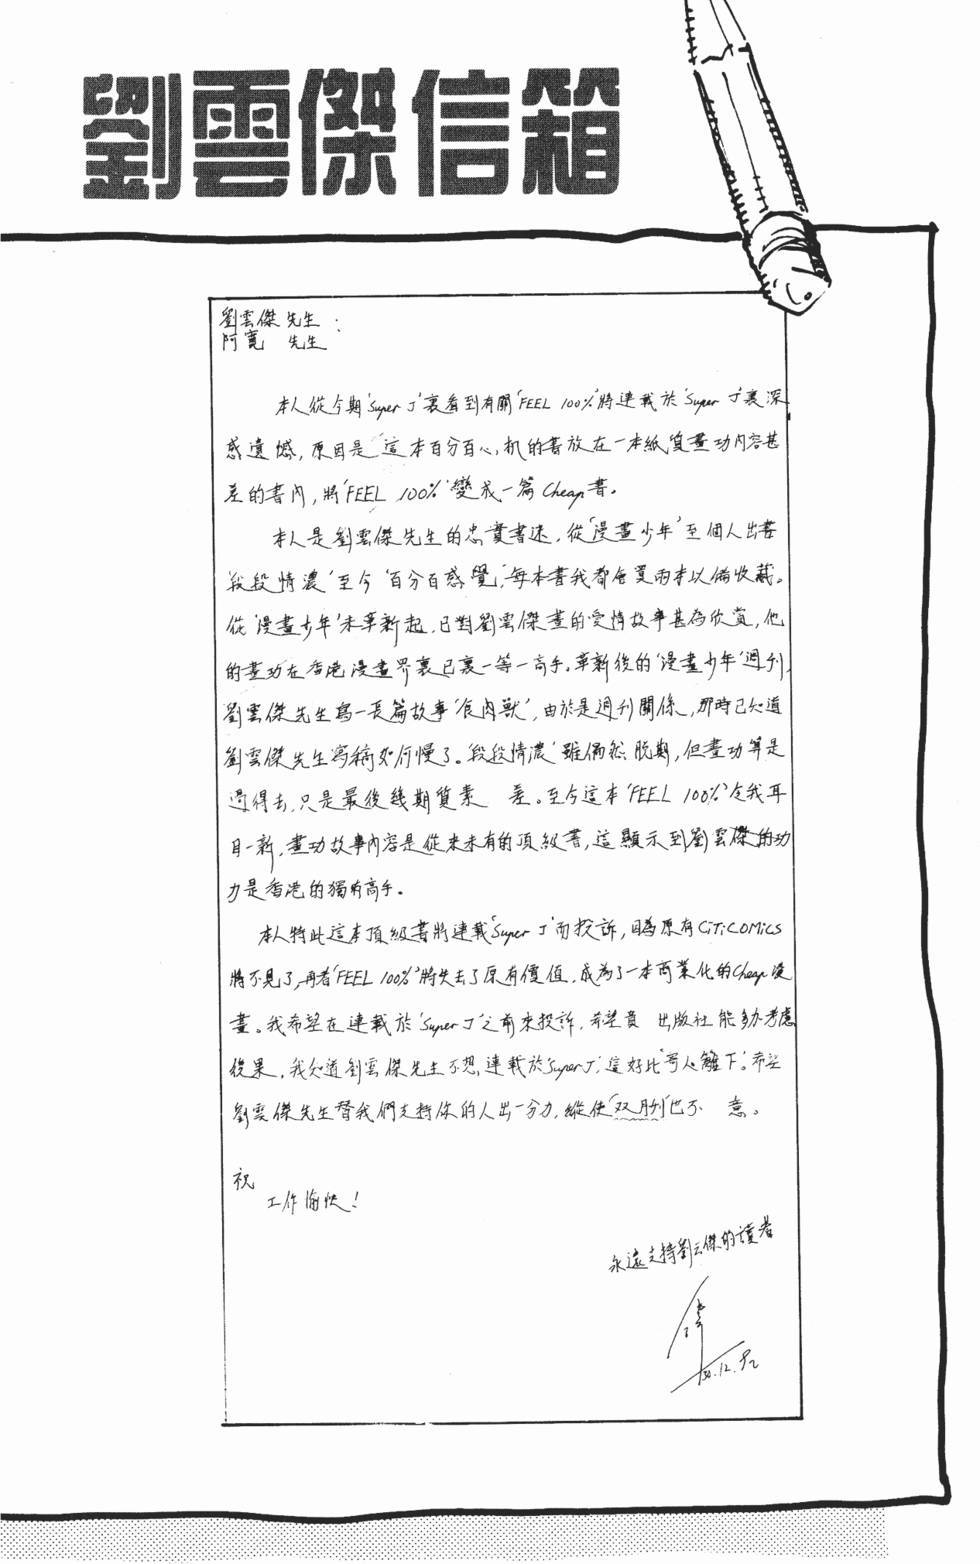 劉雲傑信箱
劉雲傑先生：
阿寬　先生
本人從今期'Super J'裏看到有關'FEEL 100%'將連載於'Super J'裏深
感遺憾，原因是這本百分百心机的書放在一本紙質畫功內容甚
差的書內，將'FEEL 100%'變成一篇Cheap書。
本人是劉雲傑先生的忠實書迷，從'漫畫少年'至個人出書
'段段情濃'至今'百分百感覺'，每本書我都會買兩本以備收藏。
從'漫畫少年'未革新起，已對劉雲傑畫的愛情故事甚為欣賞，他
的畫功在香港漫畫界裏已裏一等一高手。革新後的'漫畫少年'週刊，
劉雲傑先生寫一長篇故事'食肉獸'，由於是週刊關係，那時已知道
劉雲傑先生寫稿如何慢了。'段段情濃'雖偶然脫期，但畫功算是
過得去，只是最後幾期質素　差。至今這本'FEEL 100%'令我耳
目一新，畫功故事內容是從來未有的頂級書，這顯示到劉雲傑的功
力是香港的獨有高手。
本人特此這本頂級書將連載'Super J'而投訴，因為原有CiTiCOMiCS
將不見了，再者'FEEL 100%'將失去了原有價值，成為了一本商業化的Cheap漫
畫。我希望在連載於'Super J'之前來投訴，希望貴　出版社能夠考慮
後果。我知道劉雲傑先生不想連載於'Super J'，這好比"寄人籬下"。希望
劉雲傑先生替我們支持你的人出一分力，縱使'双月刊'也不　意。
祝
工作愉快！
永遠支持劉雲傑的讀者
30.12.92